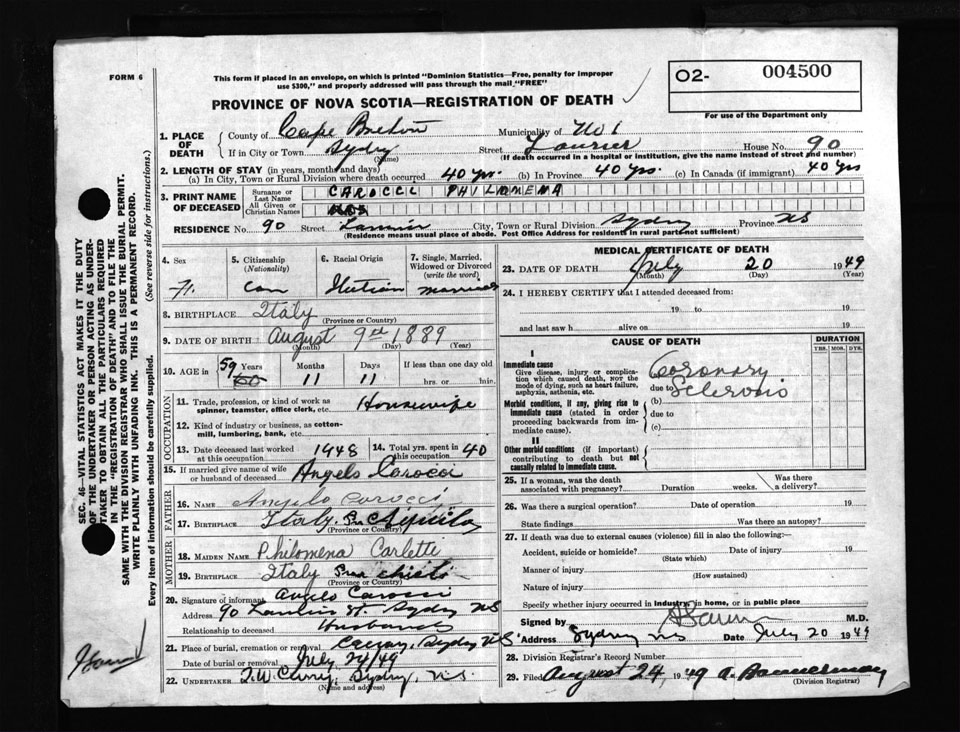 FORM 6
This form if placed in an envelope, on which is printed "Dominion Statistics—Free, penalty for improper
use $300," and properly addressed will pass through the mail "FREE"
O2- 004500
For use of the Department only
PROVINCE OF NOVA SCOTIA—REGISTRATION OF DEATH
1. PLACE OF DEATH
County of Cape Breton Municipality of No 1
If in City or Town Sydney (Name) Street Laurier House No. 90
(If death occurred in a hospital or institution, give the name instead of street and number)
2. LENGTH OF STAY (in years, months and days)
(a) In City, Town or Rural Division where death occurred 40 yrs. (b) In Province 40 yrs. (c) In Canada (if immigrant) 40 yrs
3. PRINT NAME OF DECEASED
Surname or Last Name CAROCCI PHILOMENA
All Given or Christian Names
RESIDENCE No. 90 Street Laurier City, Town or Rural Division Sydney Province NS
(Residence means usual place of abode. Post Office Address for residents in rural parts not sufficient)
4. Sex F.
5. Citizenship (Nationality) Can
6. Racial Origin Italian
7. Single, Married, Widowed or Divorced (write the word) Married
8. BIRTHPLACE Italy
(Province or Country)
9. DATE OF BIRTH August 9th 1889
(Month) (Day) (Year)
10. AGE in 59 Years 11 Months 11 Days If less than one day old
hrs. or min.
OCCUPATION
11. Trade, profession, or kind of work as
spinner, teamster, office clerk, etc. Housewife
12. Kind of industry or business, as cotton-
mill, lumbering, bank, etc.
13. Date deceased last worked at this occupation 1948
14. Total yrs. spent in this occupation 40
15. If married give name of wife
or husband of deceased Angelo Carocci
FATHER
16. NAME Angelo Carocci
17. BIRTHPLACE Italy.
(Province or Country)
MOTHER
18. MAIDEN NAME Philomena Carletti
19. BIRTHPLACE Italy
(Province or Country)
20. Signature of informant Angelo Carocci
Address 90 Laurier St. Sydney NS
Relationship to deceased Husband
21. Place of burial, cremation or removal Sydney NS
Date of burial or removal July 24/49
22. UNDERTAKER Sydney, N.S.
(Name and address)
MEDICAL CERTIFICATE OF DEATH
23. DATE OF DEATH July 20 1949
(Month) (Day) (Year)
24. I HEREBY CERTIFY that I attended deceased from:
19 to 19
and last saw h alive on 19
CAUSE OF DEATH
DURATION
YRS. MOS. DYS.
I
Immediate cause
Give disease, injury or complica-
tion which caused death, NOT the
mode of dying, such as heart failure,
asphyxia, asthenia, etc.
(a) Coronary
due to Sclerosis
Morbid conditions, if any, giving rise to
immediate cause (stated in order
proceeding backwards from im-
mediate cause).
(b)
due to
(c)
II
Other morbid conditions (if important)
contributing to death but not
causally related to immediate cause.
25. If a woman, was the death
associated with pregnancy? Duration weeks. Was there a delivery?
26. Was there a surgical operation? Date of operation 19
State findings Was there an autopsy?
27. If death was due to external causes (violence) fill in also the following:
Accident, suicide or homicide? Date of injury 19
(State which)
Manner of injury
(How sustained)
Nature of injury
Specify whether injury occurred in industry, in home, or in public place
Signed by M.D.
Address Sydney NS Date July 20 1949
28. Division Registrar's Record Number
29. Filed August 24, 1949 A. Bannerman
(Division Registrar)
SEC. 46—VITAL STATISTICS ACT MAKES IT THE DUTY
OF THE UNDERTAKER OR PERSON ACTING AS UNDER-
TAKER TO OBTAIN ALL THE PARTICULARS REQUIRED
IN THE "REGISTRATION OF DEATH" AND TO FILE THE
SAME WITH THE DIVISION REGISTRAR WHO SHALL ISSUE THE BURIAL PERMIT.
WRITE PLAINLY WITH UNFADING INK. THIS IS A PERMANENT RECORD.
Every item of information should be carefully supplied. (See reverse side for instructions.)